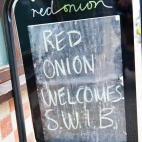 red onion
RED
ONION
WELCOMES
S.W.I.B.